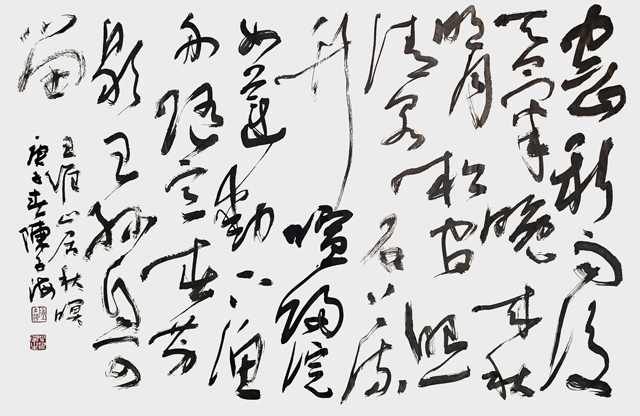 空山新雨後
天氣晚來秋
明月松間照
清泉石上流
竹喧歸浣
女蓮動下漁
舟隨意春芳
歇王孫自可
留
王維山居秋暝
庚子春陳子海